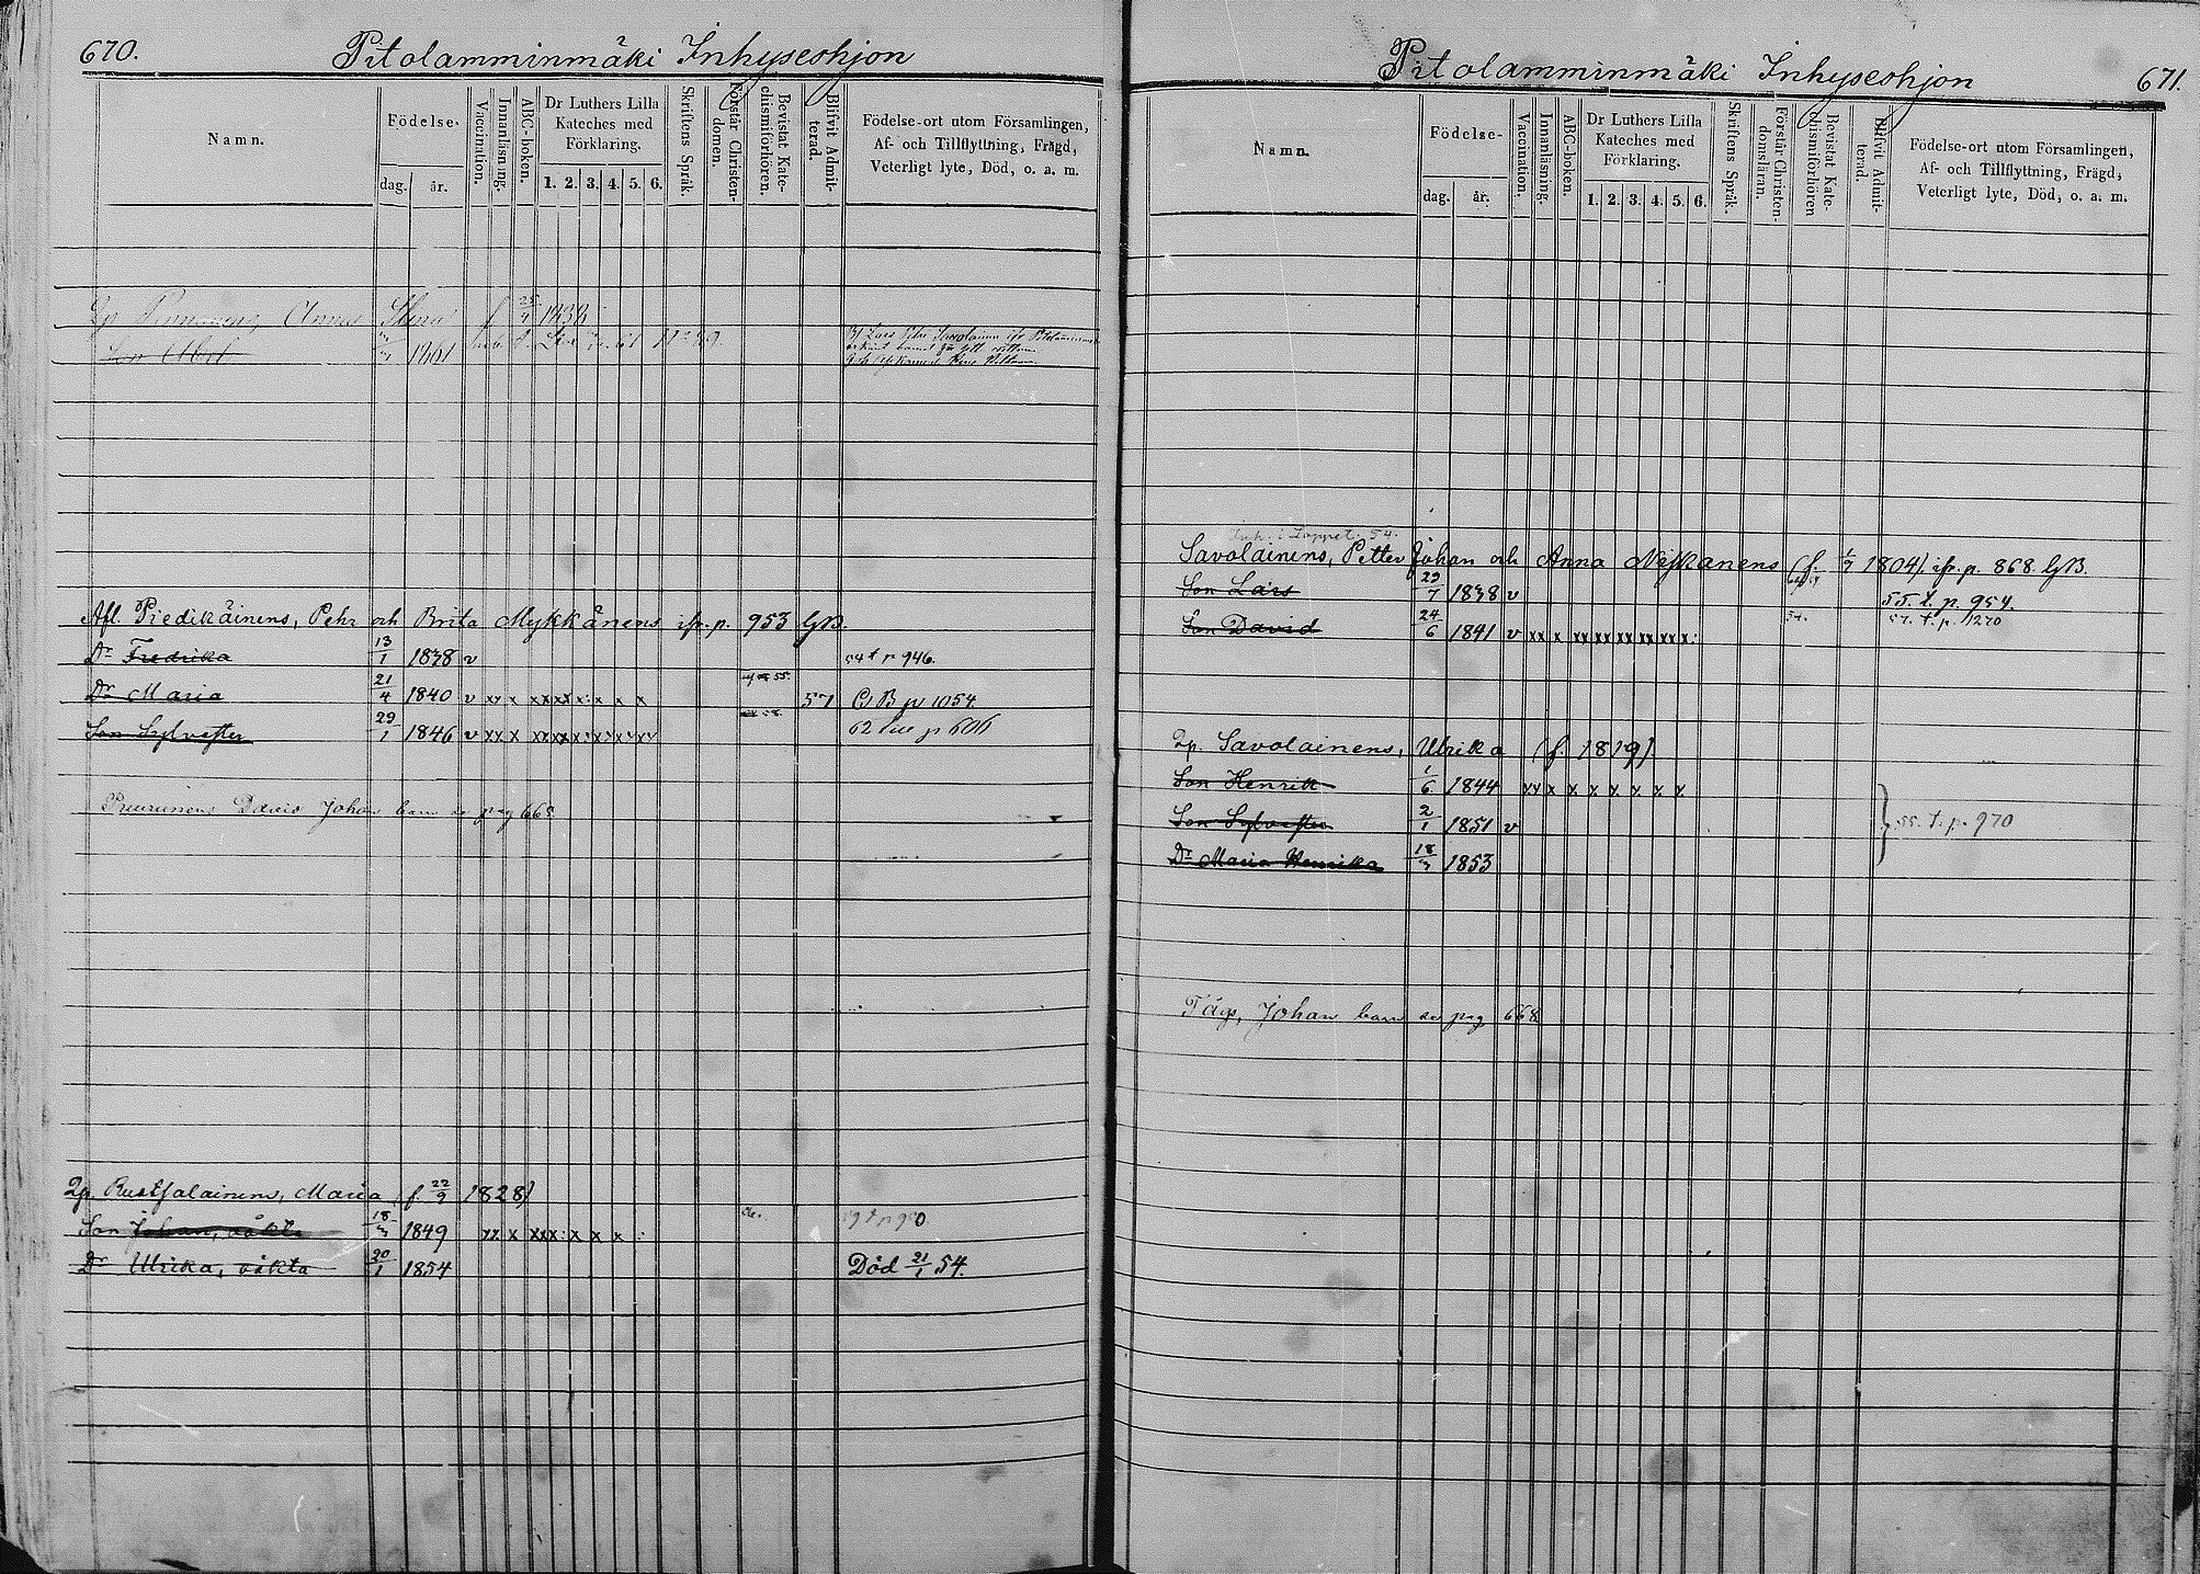 670.
Pitolamminmäki Inhyseshjon
Namn.
Födelse-
dag.
år.
Vaccination.
Innanläsning.
ABC-boken.
Dr Luthers Lilla
Kateches med
Förklaring.
1. 2. 3. 4. 5. 6.
Skriftens Språk.
Förstår Christen-
domen.
Bevistat Kate-
chismiförhören.
Blifvit Admit-
terad.
Födelse-ort utom Församlingen,
Af- och Tillflyttning, Frägd,
Veterligt lyte, Död, o. a. m.
Anna Stina f 25/4 1838
Son Abel 1861
Afl. Piedikäinens, Pehr och Brita Mykkänens ifr. p. 953 GB.
Dr Fredrika 13/1 1838 v 54 t p 946.
Dr Maria 21/4 1840 v xx x xxxx x x x x 57 CB p 1054
Son Sylvester 29/1 1846 v xx x 62 p 606
Johan barn se pag 668
Qp. Rustfalainens, Maria (f 22/9 1828)
Son Johan, oäkta 18/3 1849 xx x xxx x x x
Dr Ulrika, oäkta 20/1 1854 Död 21/1 54.
Pitolamminmäki Inhyseshjon
671.
Namn.
Födelse-
dag.
år.
Vaccination.
Innanläsning.
ABC-boken.
Dr Luthers Lilla
Kateches med
Förklaring.
1. 2. 3. 4. 5. 6.
Skriftens Språk.
Förstår Christen-
domsläran.
Bevistat Kate-
chismiförhören
Blifvit Admit-
terad.
Födelse-ort utom Församlingen,
Af- och Tillflyttning, Frägd,
Veterligt lyte, Död, o. a. m.
Savolainens, Petter Johan och Anna Niskanens (f. 1/7 1804) ifr. p. 868 GB.
Son Lars 29/7 1838 v 55. t. p. 954.
Son David 24/6 1841 v xx x xx xx xx xx xx 54. 57. t. p. 1270
Qp. Savolainens, Ulrika (f. 1819)
Son Henrik 1/6 1844 xx x x x x x x x
Son Sylvester 2/1 1851 v 55. t. p. 970
Dr Maria Henrika 18/3 1853
Tägs, Johan barn se pag 668